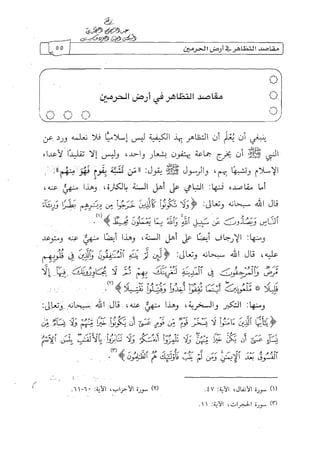 مقاصد التظاهر في أرض الحرمين
٥٥
مقاصد التظاهر في أرض الحرمين
ينبغي أن يُعْلَم أن التظاهر بهذ الكيفية ليس إسلاميًّا فلا نعلمه ورد عن
النبي ﷺ أن يخرج جماعة يهتفون بشعار واحد، وليس إلا تقليدًا لأعداء
الإسلام وتشبهًا بهم، والرسول ﷺ يقول: «مَن تَشَبَّهَ بِقَومٍ فَهُوَ مِنهُم»:
أما مقاصده فمنها: التباهي على أهل السنة بالكثرة، وهذا منهيٌّ عنه،
قال الله سبحانه وتعالى: ﴿وَلَا تَكُونُوا كَالَّذِينَ خَرَجُوا مِن دِيَارِهِم بَطَرًا وَرِئَاءَ
النَّاسِ وَيَصُدُّونَ عَن سَبِيلِ اللَّهِ وَاللَّهُ بِمَا يَعْمَلُونَ مُحِيطٌ﴾(١).
ومنها: الإرجاف أيضًا على أهل السنة، وهذا أيضًا منهيٌّ عنه ومتوعد
عليه، قال الله سبحانه وتعالى: ﴿لَئِن لَّمْ يَنتَهِ الْمُنَافِقُونَ وَالَّذِينَ فِي قُلُوبِهِم
مَّرَضٌ وَالْمُرْجِفُونَ فِي الْمَدِينَةِ لَنُغْرِيَنَّكَ بِهِمْ ثُمَّ لَا يُجَاوِرُونَكَ فِيهَا إِلَّا
قَلِيلًا * مَّلْعُونِينَ أَيْنَمَا ثُقِفُوا أُخِذُوا وَقُتِّلُوا تَقْتِيلًا﴾(٢).
ومنها: التكبر والسخرية، وهذا منهيٌّ عنه. قال الله سبحانه وتعالى:
﴿يَا أَيُّهَا الَّذِينَ آمَنُوا لَا يَسْخَرْ قَوْمٌ مِّن قَوْمٍ عَسَى أَن يَكُونُوا خَيْرًا مِّنْهُمْ وَلَا نِسَاءٌ مِّن
نِّسَاءٍ عَسَى أَن يَكُنَّ خَيْرًا مِّنْهُنَّ وَلَا تَلْمِزُوا أَنفُسَكُمْ وَلَا تَنَابَزُوا بِالْأَلْقَابِ بِئْسَ الِاسْمُ
الْفُسُوقُ بَعْدَ الْإِيمَانِ وَمَن لَّمْ يَتُبْ فَأُولَئِكَ هُمُ الظَّالِمُونَ﴾(٣).
(١) سورة الأنفال، الآية: ٤٧.
(٢) سورة الأحزاب، الآية: ٦٠-٦١.
(٣) سورة الحجرات، الآية: ١١.